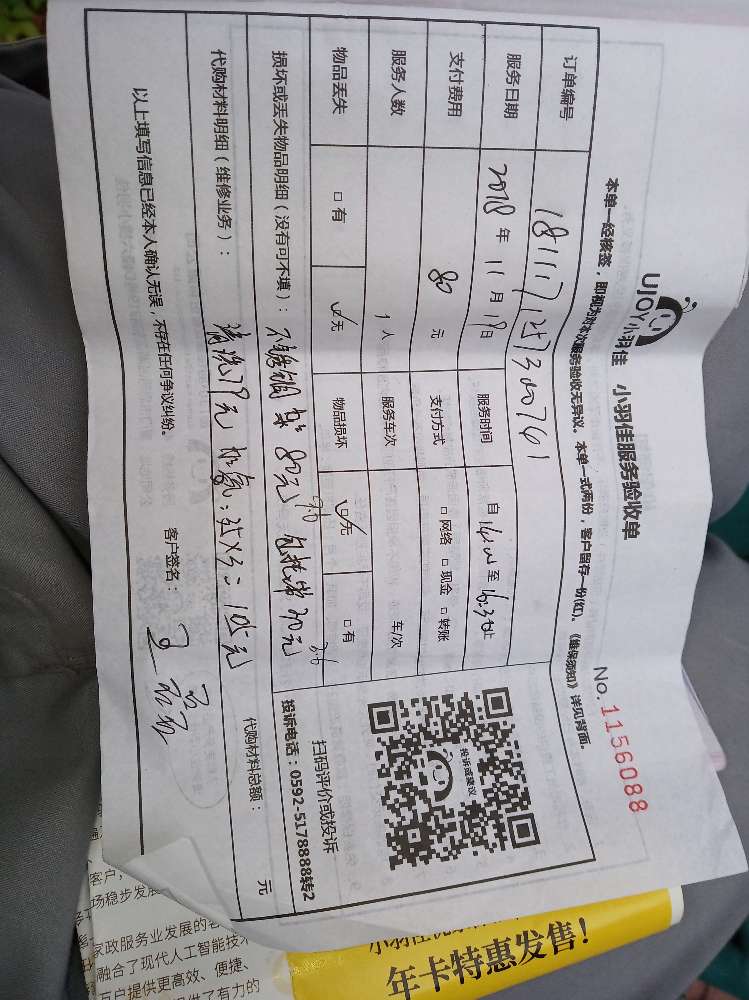 UJOY小羽佳 小羽佳服务验收单
No.1156088
本单一经核签，即视为对本次服务验收无异议。本单一式两份，客户留存一份(红)。《维保须知》详见背面。
订单编号
服务日期 2018 年 11 月 19 日 服务时间 自 至 止
支付费用 80 元 支付方式 □ 网络 □ 现金 □ 转账
服务人数 1 人 服务车次 车/次
物品丢失 □ 有 ☑ 无 物品损坏 ☑ 无 □ 有
投诉或建议
扫码评价或投诉
投诉电话：0592-5178888转2
损坏或丢失物品明细（没有可不填）： 不锈钢架 80元
代购材料明细（维修业务）： 清洗79元 加氟：35×3=105元
代购材料总额： 元
以上填写信息已经本人确认无误，不存在任何争议纠纷。 客户签名：
年卡特惠发售！
客户，
场稳步发展
家政服务业发展的
融合了现代人工智能技术
户提供更高效、便捷、
了有力的